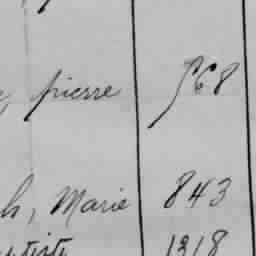 pierre 568
h, Marie 843
aptiste 1318